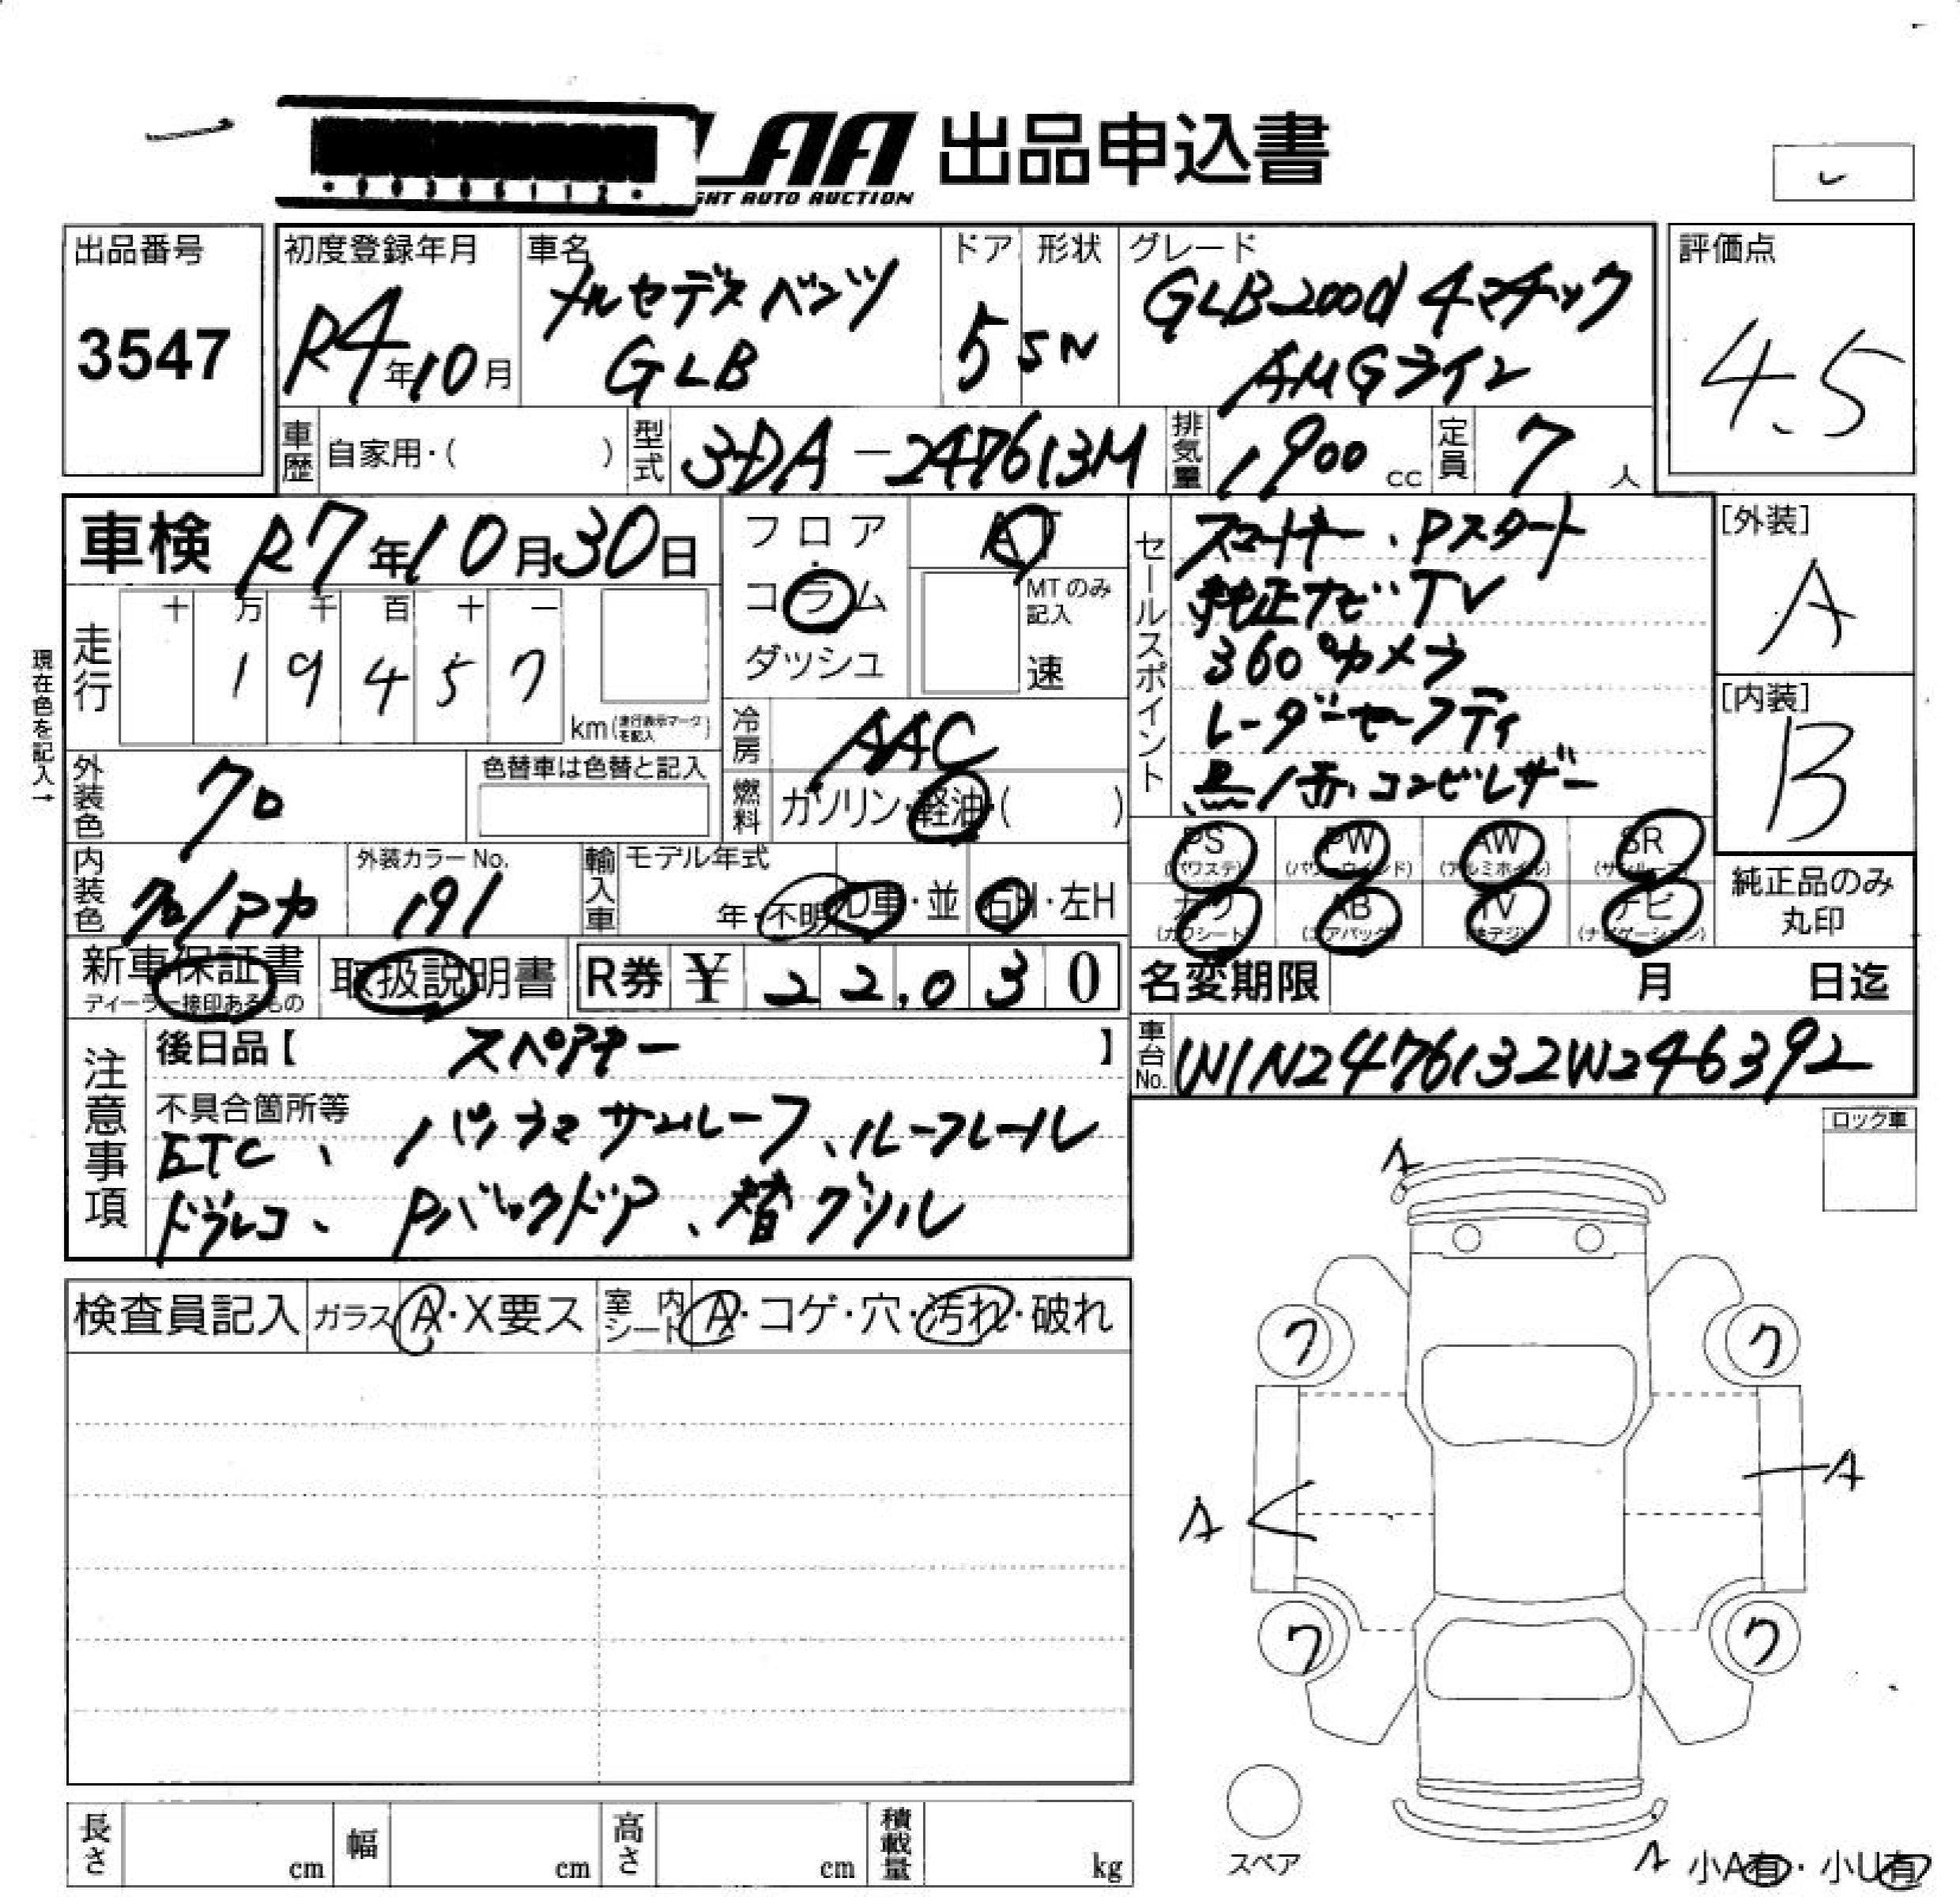 LAA 出品申込書
GHT AUTO AUCTION
出品番号
3547
初度登録年月
R4年10月
車名
メルセデスベンツ
GLB
ドア
5
形状
SN
グレード
GLB200d 4マチック
AMGライン
評価点
4.5
車歴
自家用・( )
型式
3DA-247613M
排気量
1900 cc
定員
7 人
車検 R7年10月30日
フロア
・
コラム
・
ダッシュ
AT
MTのみ
記入
速
現在色を記入→
走行
十 万 千 百 十 一
1 9 4 5 7
km(走行表示マークを記入)
冷房
AAC
燃料
ガソリン・軽油・( )
セールスポイント
スマートキー、Pスタート
純正ナビ・TV
360°カメラ
レーダーセーフティ
黒/赤コンビレザー
[外装]
A
[内装]
B
外装色
クロ
色替車は色替と記入
内装色
クロ/アカ
外装カラーNo.
191
輸入車
モデル年式
年・不明
D車・並
右H・左H
PS
(パワステ)
PW
(パワーウインド)
AW
(アルミホイル)
SR
(サンルーフ)
カワ
(カワシート)
AB
(エアバッグ)
TV
(地デジ)
ナビ
(ナビゲーション)
純正品のみ
丸印
新車保証書
ディーラー捺印あるもの
取扱説明書
R券 ¥ 22,030
名変期限 月 日迄
注意事項
後日品【 スペアキー 】
車台No.
W1N2476132W246392
不具合箇所等
ETC、パノラマサンルーフ、ルーフレール
ドラレコ、Pバックドア、替グリル
ロック車
検査員記入
ガラス A・X要ス
室内シート A・コゲ・穴・汚れ・破れ
A
ワ
ワ
A
A
ワ
ワ
スペア
A
小A有・小U有
長さ cm
幅 cm
高さ cm
積載量 kg